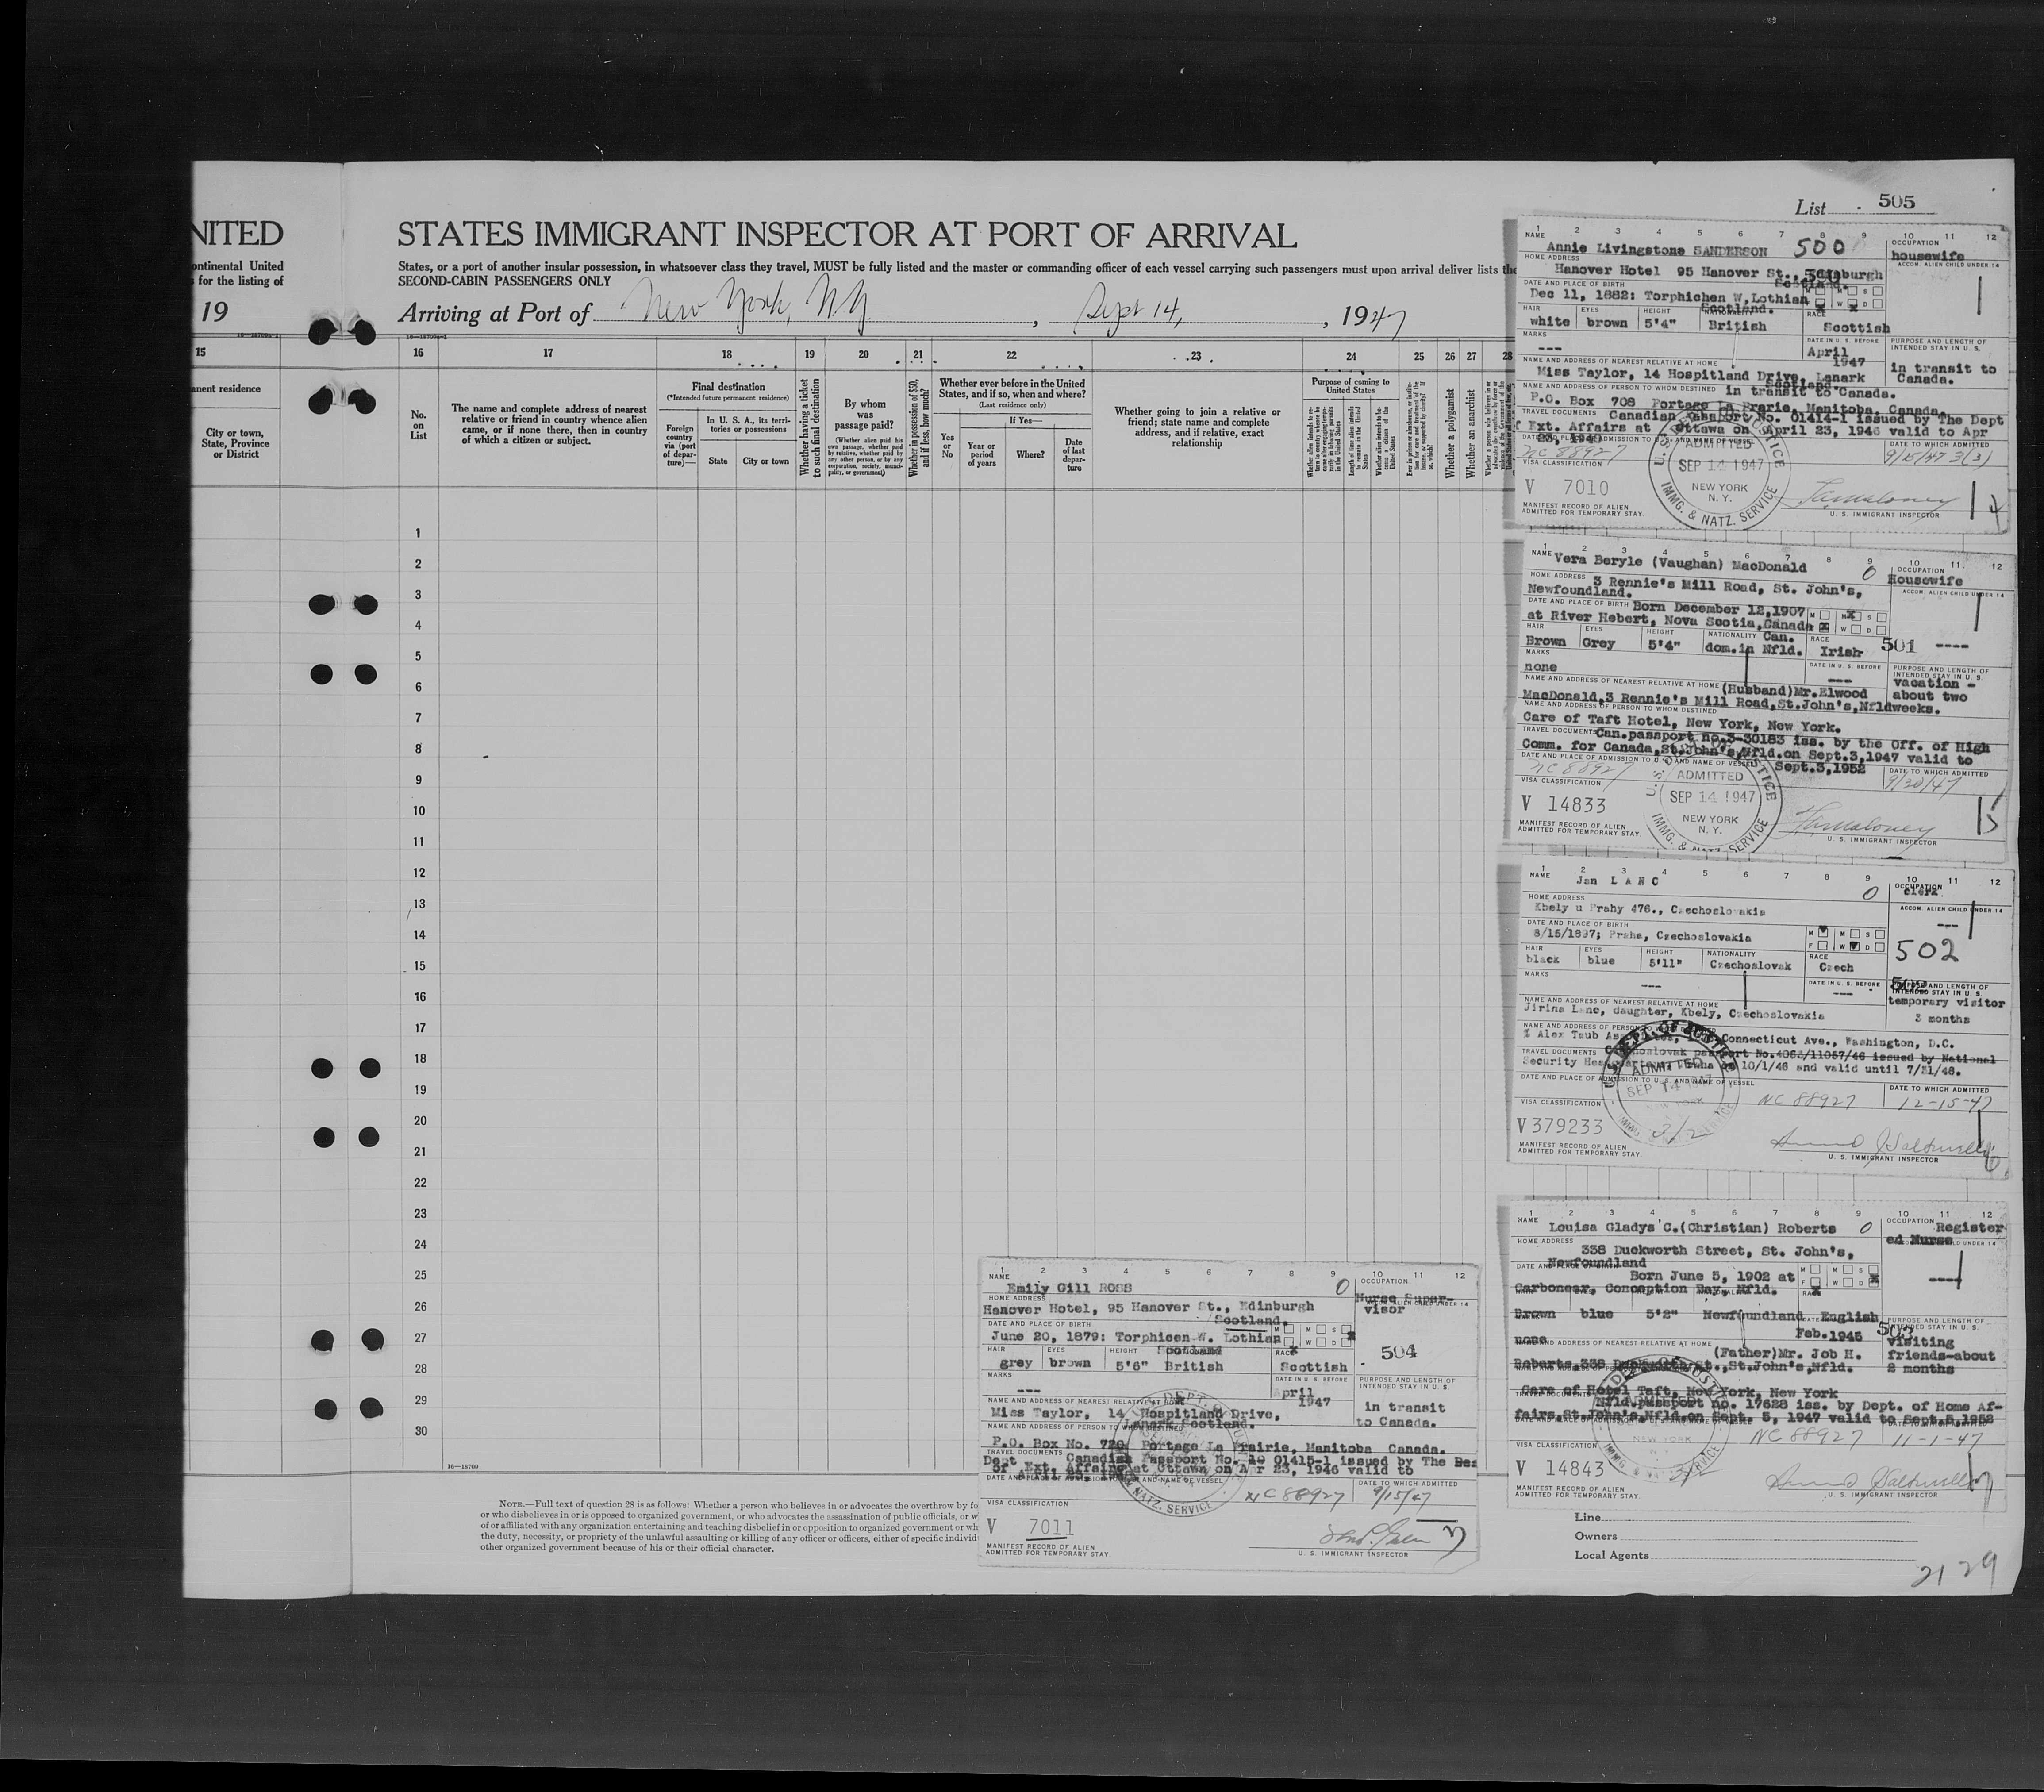 List 505
NITED
STATES IMMIGRANT INSPECTOR AT PORT OF ARRIVAL
ontinental United
for the listing of
19
States, or a port of another insular possession, in whatsoever class they travel, MUST be fully listed and the master or commanding officer of each vessel carrying such passengers must upon arrival deliver lists the
SECOND-CABIN PASSENGERS ONLY
Arriving at Port of New York, N.Y. , Sept 14, , 1947
15
anent residence
City or town,
State, Province
or District
16 17 18 19 20 21 22 23 24 25 26 27 28
No.
on
List
The name and complete address of nearest
relative or friend in country whence alien
came, or if none there, then in country
of which a citizen or subject.
Final destination
(*Intended future permanent residence)
Foreign
country
via (port
of depar-
ture)—
In U. S. A., its terri-
tories or possessions
State
City or town
Whether having a ticket
to such final destination
By whom
was
passage paid?
(Whether alien paid his
own passage, whether paid
by relative, whether paid by
any other person, or by any
corporation, society, munici-
pality, or government)
Whether in possession of $50,
and if less, how much?
Whether ever before in the United
States, and if so, when and where?
(Last residence only)
If Yes—
Yes
or
No
Year or
period
of years
Where?
Date
of last
depar-
ture
Whether going to join a relative or
friend; state name and complete
address, and if relative, exact
relationship
Purpose of coming to
United States
Whether a polygamist
Whether an anarchist
1
2
3
4
5
6
7
8
9
10
11
12
13
14
15
16
17
18
19
20
21
22
23
24
25
26
27
28
29
30
16—18700
NOTE.—Full text of question 28 is as follows: Whether a person who believes in or advocates the overthrow by fo
or who disbelieves in or is opposed to organized government, or who advocates the assassination of public officials, or w
of or affiliated with any organization entertaining and teaching disbelief in or opposition to organized government or wh
the duty, necessity, or propriety of the unlawful assaulting or killing of any officer or officers, either of specific individ
other organized government because of his or their official character.
1 2 3 4 5 6 7 8 9 10 11 12
NAME Annie Livingstone SANDERSON 500
OCCUPATION housewife
HOME ADDRESS
Hanover Hotel 95 Hanover St., Edinburgh
Scotland.
ACCOM. ALIEN CHILD UNDER 14
DATE AND PLACE OF BIRTH
Dec 11, 1882: Torphichen W. Lothian
Scotland.
HAIR EYES HEIGHT NATIONALITY RACE
white brown 5'4" British Scottish
MARKS
---
DATE IN U. S. BEFORE
April 1947
PURPOSE AND LENGTH OF INTENDED STAY IN U. S.
in transit to
Canada.
NAME AND ADDRESS OF NEAREST RELATIVE AT HOME
Miss Taylor, 14 Hospitland Drive, Lanark
Scotland.
NAME AND ADDRESS OF PERSON TO WHOM DESTINED in transit to Canada.
P.O. Box 708 Portage La Prarie, Manitoba, Canada.
TRAVEL DOCUMENTS Canadian Passport No. 01414-1 issued by The Dept
f Ext. Affairs at Ottawa on April 23, 1946 valid to Apr
23, 1948
NC 88927
ADMITTED
SEP 14 1947
NEW YORK
N. Y.
IMMG. & NATZ. SERVICE
DATE TO WHICH ADMITTED
9/15/47 3(3)
VISA CLASSIFICATION
V 7010
MANIFEST RECORD OF ALIEN
ADMITTED FOR TEMPORARY STAY.
U. S. IMMIGRANT INSPECTOR
1 2 3 4 5 6 7 8 9 10 11 12
NAME Vera Beryle (Vaughan) MacDonald 0
OCCUPATION Housewife
HOME ADDRESS 3 Rennie's Mill Road, St. John's,
Newfoundland.
ACCOM. ALIEN CHILD UNDER 14
DATE AND PLACE OF BIRTH Born December 12,1907
at River Hebert, Nova Scotia,Canada
HAIR EYES HEIGHT NATIONALITY RACE
Brown Grey 5'4" Can. dom.in Nfld. Irish 501 ----
MARKS
none
DATE IN U. S. BEFORE
---
PURPOSE AND LENGTH OF INTENDED STAY IN U. S.
vacation -
about two
weeks.
NAME AND ADDRESS OF NEAREST RELATIVE AT HOME (Husband)Mr.Elwood
MacDonald,3 Rennie's Mill Road,St.John's,Nfld
NAME AND ADDRESS OF PERSON TO WHOM DESTINED
Care of Taft Hotel, New York, New York.
TRAVEL DOCUMENTS Can.passport no.3-30183 iss. by the Off. of High
Comm. for Canada,St.John's,Nfld.on Sept.3,1947 valid to
Sept.3,1952
NC 88927
ADMITTED
SEP 14 1947
NEW YORK
N. Y.
DATE TO WHICH ADMITTED
9/30/47
VISA CLASSIFICATION
V 14833
MANIFEST RECORD OF ALIEN
ADMITTED FOR TEMPORARY STAY.
U. S. IMMIGRANT INSPECTOR
1 2 3 4 5 6 7 8 9 10 11 12
NAME Jan LANC 0
OCCUPATION clerk
HOME ADDRESS
Kbely u Prahy 476., Czechoslovakia
ACCOM. ALIEN CHILD UNDER 14
---
DATE AND PLACE OF BIRTH
8/15/1897; Praha, Czechoslovakia
502
HAIR EYES HEIGHT NATIONALITY RACE
black blue 5'11" Czechoslovak Czech
MARKS
----
DATE IN U. S. BEFORE
PURPOSE AND LENGTH OF INTENDED STAY IN U. S.
temporary visitor
3 months
NAME AND ADDRESS OF NEAREST RELATIVE AT HOME
Jirina Lanc, daughter, Kbely, Czechoslovakia
NAME AND ADDRESS OF PERSON TO WHOM DESTINED
% Alex Taub Connecticut Ave., Washington, D.C.
TRAVEL DOCUMENTS Czechoslovak passport issued by National
Security 10/1/46 and valid until 7/31/48.
DATE AND PLACE OF ADMISSION TO U. S. AND NAME OF VESSEL
NC 88927
U.S. DEPT. OF JUSTICE
ADMITTED
SEP 14
3/2
DATE TO WHICH ADMITTED
12-15-47
VISA CLASSIFICATION
V 379233
MANIFEST RECORD OF ALIEN
ADMITTED FOR TEMPORARY STAY.
U. S. IMMIGRANT INSPECTOR
1 2 3 4 5 6 7 8 9 10 11 12
NAME Louisa Gladys C.(Christian) Roberts 0
OCCUPATION Register
ed Nurse
HOME ADDRESS
338 Duckworth Street, St. John's,
Newfoundland
Born June 5, 1902 at
Carbonear, Conception Bay, Nfld.
Brown blue 5'2" Newfoundland English
none
Feb.1945
503
visiting
friends-about
2 months
(Father)Mr. Job H.
Roberts,338 Duckworth St.,St.John's,Nfld.
Care of Hotel Taft, New York, New York
Nfld.passport no. 17628 iss. by Dept. of Home Af-
fairs,St.John's,Nfld.on Sept. 5, 1947 valid to Sept.5,1952
NC 88927
11-1-47
VISA CLASSIFICATION
V 14843
MANIFEST RECORD OF ALIEN
ADMITTED FOR TEMPORARY STAY.
U. S. IMMIGRANT INSPECTOR
1 2 3 4 5 6 7 8 9 10 11 12
NAME Emily Gill ROSS 0
OCCUPATION
Nurse Super-
visor
HOME ADDRESS
Hanover Hotel, 95 Hanover St., Edinburgh
Scotland.
DATE AND PLACE OF BIRTH
June 20, 1879: Torphicen W. Lothian
Scotland
504
HAIR EYES HEIGHT RACE
grey brown 5'6" British Scottish
MARKS
---
DATE IN U. S. BEFORE
April 1947
PURPOSE AND LENGTH OF INTENDED STAY IN U. S.
in transit
to Canada.
NAME AND ADDRESS OF NEAREST RELATIVE AT HOME
Miss Taylor, 14 Hospitland Drive,
Lanark Scotland.
NAME AND ADDRESS OF PERSON TO WHOM DESTINED
P.O. Box No. 720 Portage La Prairie, Manitoba Canada.
TRAVEL DOCUMENTS
Dept Canadian Passport No. 01415-1 issued by The
of Ext. Affairs at Ottawa on Apr 23, 1946 valid to
NC 88927
NATZ. SERVICE
DATE TO WHICH ADMITTED
9/15/47
VISA CLASSIFICATION
V 7011
MANIFEST RECORD OF ALIEN
ADMITTED FOR TEMPORARY STAY.
U. S. IMMIGRANT INSPECTOR
Line
Owners
Local Agents
2129